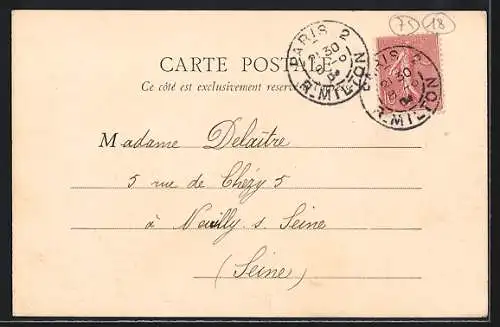 75 18
PARIS 2
21 30
R. MILTON
PARIS 2
21 30
R. MILTON
CARTE POSTALE
Ce côté est exclusivement réservé
Madame Delaitre
5 rue de Chézy 5
à Neuilly s. Seine
(Seine)